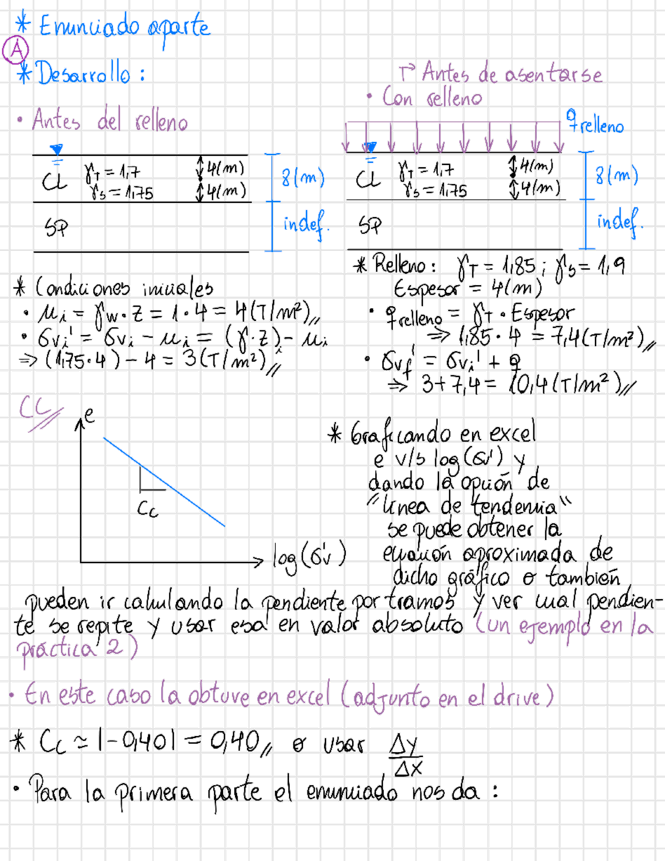 * Enunciado aparte
A
* Desarrollo :
→ Antes de asentarse
• Antes del relleno
• Con relleno
q relleno
CL γT = 1,7 4(m)
γS = 1,75 4(m)
8(m)
SP
indef.
CL γT = 1,7 4(m)
γS = 1,75 4(m)
8(m)
SP
indef.
* Condiciones iniciales
• μi = γw · z = 1 · 4 = 4(T/m²)//
• σvi' = σvi - μi = (γ · z) - μi
⇒ (1,75 · 4) - 4 = 3(T/m²)//
* Relleno : γT = 1,85 ; γS = 1,9
Espesor = 4(m)
• q relleno = γT · Espesor
⇒ 1,85 · 4 = 7,4(T/m²)//
• σvf' = σvi' + q
⇒ 3 + 7,4 = 10,4(T/m²)//
CC//
e
Cc
log(σv')
* Graficando en excel
e v/s log(σv') y
dando la opción de
"línea de tendencia"
se puede obtener la
ecuación aproximada de
dicho gráfico o también
pueden ir calculando la pendiente por tramos y ver cual pendien-
te se repite y usar esa en valor absoluto (un ejemplo en la
práctica 2)
• En este caso la obtuve en excel (adjunto en el drive)
* Cc ≃ |-0,40| = 0,40// o usar Δy/Δx
• Para la primera parte el enunciado nos da :